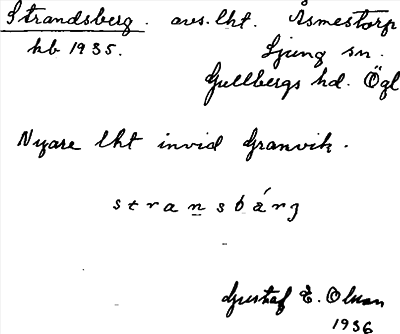 Strandsberg. avs. lht. Åsmestorp
hb 1935. Ljung sn.
Gullbergs hd. Ögl
Nyare lht invid Granvik.
stransbárg
Gustaf E. Olson
1936